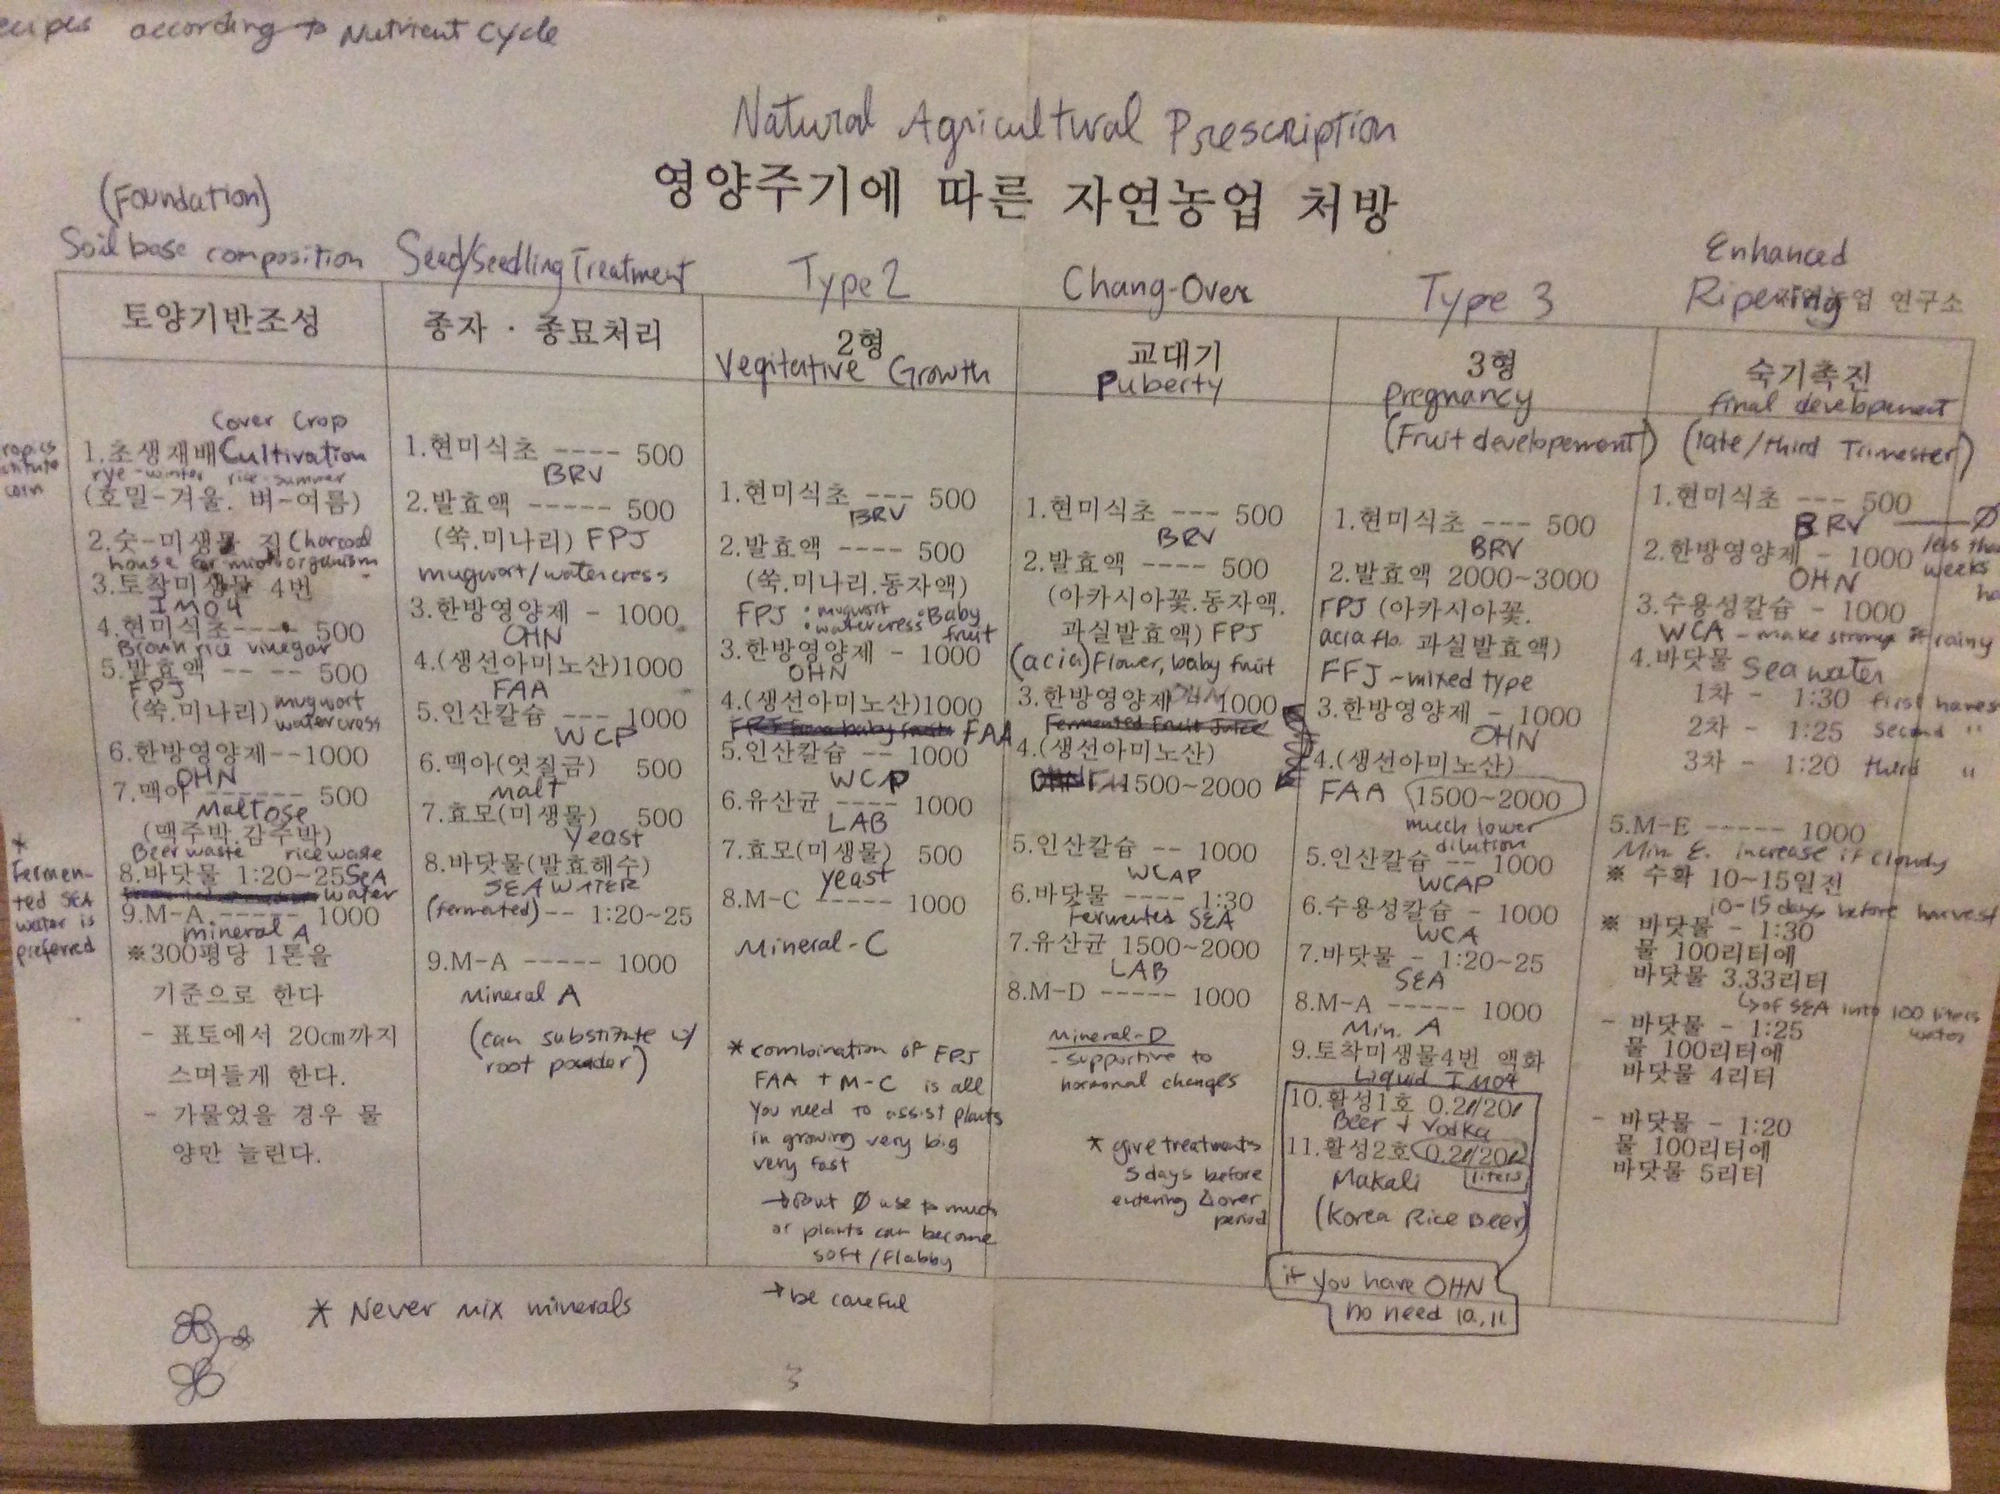 according to Nutrient Cycle
Natural Agricultural Prescription
영양주기에 따른 자연농업 처방
(Foundation)
Soil base composition
토양기반조성
Cover Crop
1.초생재배 Cultivation
rye-winter rice-summer
(호밀-겨울. 벼-여름)
corn
2.숯-미생물 집 Charcoal
house for microorganism
3.토착미생물 4번
IMO4
4.현미식초---- 500
Brown rice vinegar
5.발효액 -- -- 500
FPJ
(쑥.미나리) mugwort
watercress
6.한방영양제--1000
OHN
7.맥아 ------ 500
Maltose
(맥주박.감주박)
Beer waste rice waste
8.바닷물 1:20~25 SEA
water
9.M-A ----- 1000
mineral A
※300평당 1톤을
기준으로 한다
- 표토에서 20㎝까지
스며들게 한다.
- 가물었을 경우 물
양만 늘린다.
*
Fermen-
ted SEA
water is
preferred
Seed/Seedling Treatment
종자 · 종묘처리
1.현미식초 ---- 500
BRV
2.발효액 ----- 500
(쑥.미나리) FPJ
mugwort/watercress
3.한방영양제 - 1000
OHN
4.(생선아미노산)1000
FAA
5.인산칼슘 --- 1000
WCP
6.맥아(엿질금) 500
malt
7.효모(미생물) 500
yeast
8.바닷물(발효해수)
SEA WATER
(fermented)-- 1:20~25
9.M-A ----- 1000
Mineral A
(can substitute w/
root powder)
Type 2
2형
Vegitative Growth
1.현미식초 --- 500
BRV
2.발효액 ---- 500
(쑥.미나리.동자액)
FPJ • mugwort • Baby
• watercress fruit
3.한방영양제 - 1000
OHN
4.(생선아미노산)1000
FAA
5.인산칼슘 -- 1000
WCAP
6.유산균 ---- 1000
LAB
7.효모(미생물) 500
yeast
8.M-C ----- 1000
Mineral-C
* combination of FPJ
FAA + M-C is all
you need to assist plants
in growing very big
very fast
→ But Ø use to much
or plants can become
soft/flabby
→ be careful
Chang-Over
교대기
Puberty
1.현미식초 --- 500
BRV
2.발효액 ---- 500
(아카시아꽃.동자액.
과실발효액) FPJ
(acia) Flower, baby fruit
3.한방영양제 1000
4.(생선아미노산)
1500~2000
5.인산칼슘 -- 1000
WCAP
6.바닷물 ---- 1:30
Fermented SEA
7.유산균 1500~2000
LAB
8.M-D ----- 1000
Mineral-D
- supportive to
hormonal changes
* give treatments
5 days before
entering Δover
period
Type 3
3형
Pregnancy
(Fruit developement)
1.현미식초 --- 500
BRV
2.발효액 2000~3000
FPJ (아카시아꽃.
acia flo. 과실발효액)
FFJ ~mixed type
3.한방영양제 - 1000
OHN
4.(생선아미노산)
FAA 1500~2000
much lower
dilution
5.인산칼슘 -- 1000
WCAP
6.수용성칼슘 - 1000
WCA
7.바닷물 - 1:20~25
SEA
8.M-A ----- 1000
Min. A
9.토착미생물4번 액화
Liquid IMO4
10.활성1호 0.2ℓ/20ℓ
Beer + Vodka
11.활성2호 0.2ℓ/20ℓ
liters
Makali
(Korea Rice Beer)
if you have OHN
no need 10, 11
Enhanced
Ripening
연구소
숙기촉진
final development
(late/third Trimester)
1.현미식초 --- 500
BRV Ø
2.한방영양제 - 1000 less than
OHN weeks
3.수용성칼슘 - 1000
WCA - make strong if rainy
4.바닷물 Sea water
1차 - 1:30 first
2차 - 1:25 second "
3차 - 1:20 third "
5.M-E ----- 1000
Min. E. increase if cloudy
※ 수확 10~15일전
10-15 days before harvest
※ 바닷물 - 1:30
물 100리터에
바닷물 3.33리터
↳ of SEA into 100 liters
water
- 바닷물 - 1:25
물 100리터에
바닷물 4리터
- 바닷물 - 1:20
물 100리터에
바닷물 5리터
* Never mix minerals
3